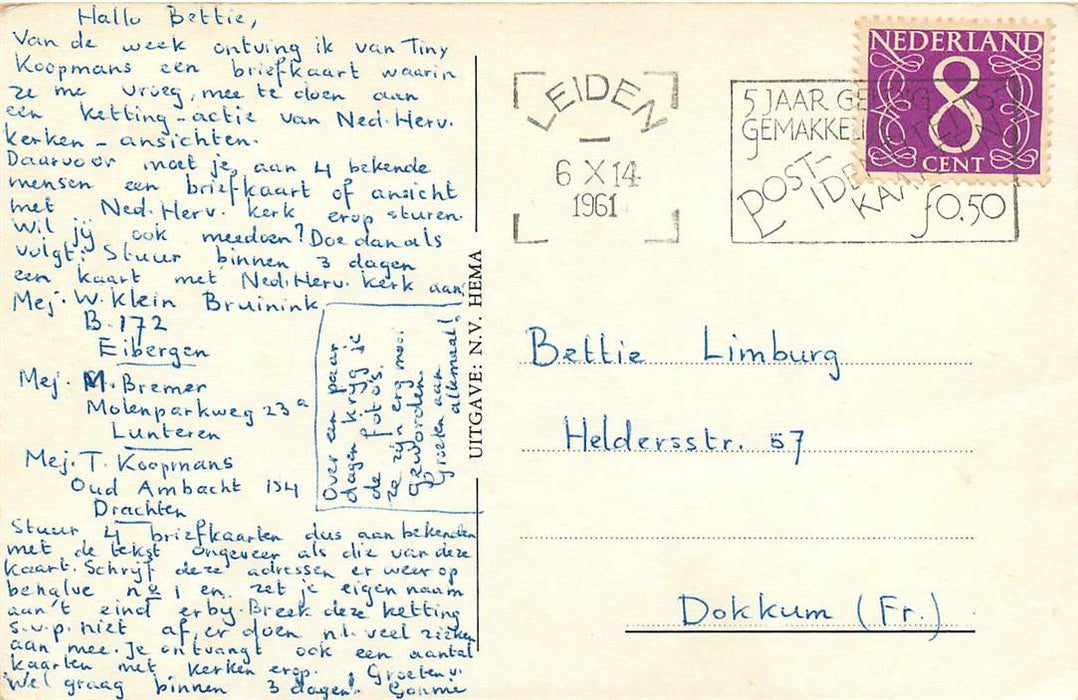 Hallo Bettie,
Van de week ontving ik van Tiny
Koopmans een briefkaart waarin
ze me vroeg, mee te doen aan
een ketting-actie van Ned. Herv.
kerken - ansichten.
Daarvoor moet je, aan 4 bekende
mensen een briefkaart of ansicht
met Ned. Herv. kerk erop sturen.
Wil jij ook meedoen? Doe dan als
volgt: Stuur binnen 3 dagen
een kaart met Ned. Herv. kerk aan:
Mej. W. Klein Bruinink
B. 172
Eibergen
Mej. M. Bremer
Molenparkweg 23a
Lunteren
Mej. T. Koopmans
Oud Ambacht 154
Drachten
Stuur 4 briefkaarten dus aan bekenden
met de tekst ongeveer als die van deze
kaart. Schrijf deze adressen er weer op
behalve no 1 en zet je eigen naam
aan't eind erby. Breek deze ketting
s.v.p. niet af, er doen n.l. veel zieken
aan mee. Je ontvangt ook een aantal
kaarten met kerken erop. Groeten v.
Wel graag binnen 3 dagen!
Over een paar
dagen krijg je
de foto's.
ze zijn erg mooi
geworden.
Groeten aan
allemaal!
UITGAVE: N.V. HEMA
LEIDEN
6 X 14
1961
5 JAAR GELDIG
GEMAKKELIJK
POST-
IDENTITEITS
KAART
f0.50
NEDERLAND
8
CENT
Bettie Limburg
Heldersstr. 57
Dokkum (Fr.)